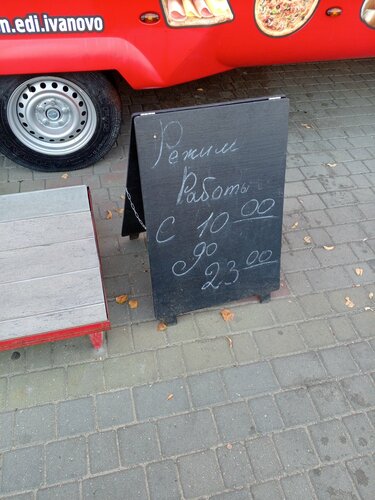 m.edi.ivanovo
Режим
Работы
с 10 00
до
23.00